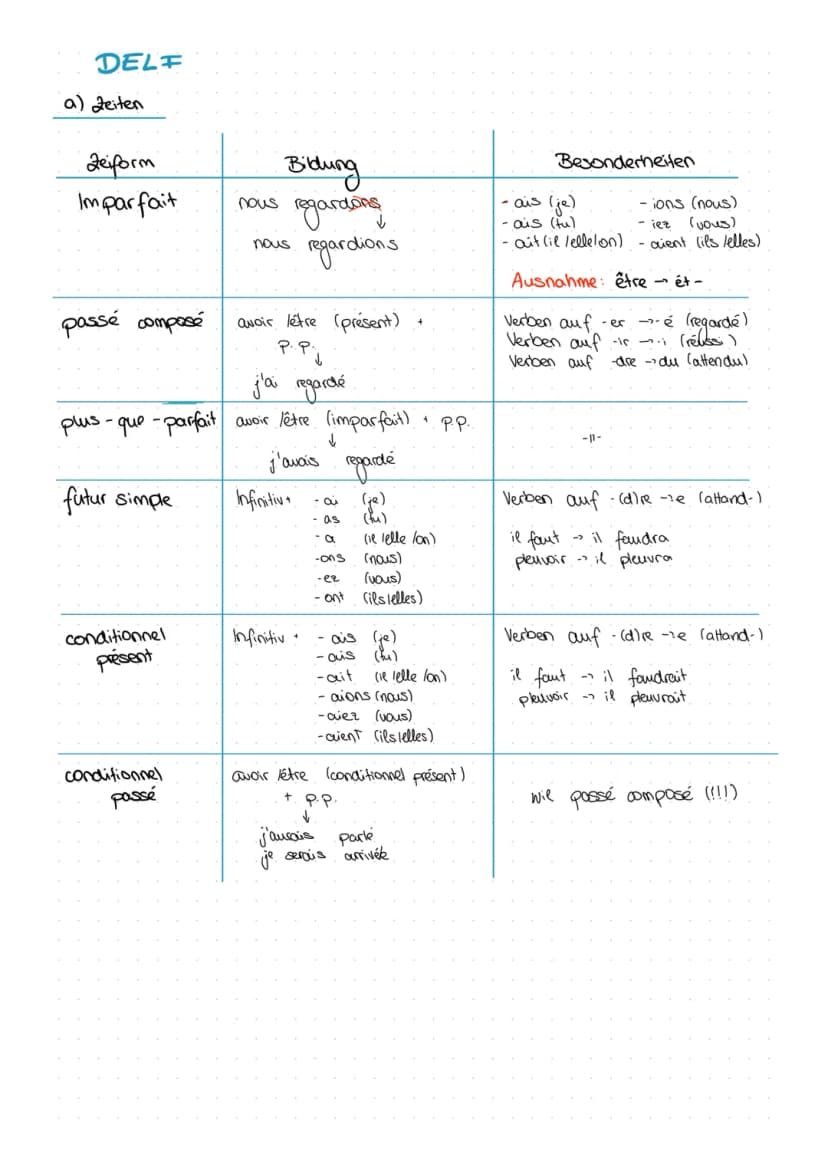 DELF
a) Zeiten
Zeiform
Bildung
Besonderheiten
Imparfait
nous regardons
↓
nous regardions
- ais (je)
- ais (tu)
- ait (il/elle/on)
- ions (nous)
- iez (vous)
- aient (ils/elles)
Ausnahme: être → ét-
passé composé
avoir/être (présent) +
P.P.
↓
j'ai regardé
Verben auf -er → -é (regardé)
Verben auf -ir → -i (réussi)
Verben auf -dre → du (attendu)
plus-que-parfait
avoir/être (imparfait) + P.P.
↓
j'avais regardé
-11-
futur simple
Infinitiv + - ai (je)
- as (tu)
- a (il/elle/on)
- ons (nous)
- ez (vous)
- ont (ils/elles)
Verben auf -(d)re → e (attand-)
il faut → il faudra
pleuvoir → il pleuvra
conditionnel
présent
Infinitiv + - ais (je)
- ais (tu)
- ait (il/elle/on)
- aions (nous)
- aiez (vous)
- aient (ils/elles)
Verben auf -(d)re → e (attand-)
il faut → il faudrait
pleuvoir → il pleuvrait
conditionnel
passé
avoir/être (conditionnel présent)
+ P.P.
↓
j'aurais parlé
je serais arrivék
wie passé composé (!!!)